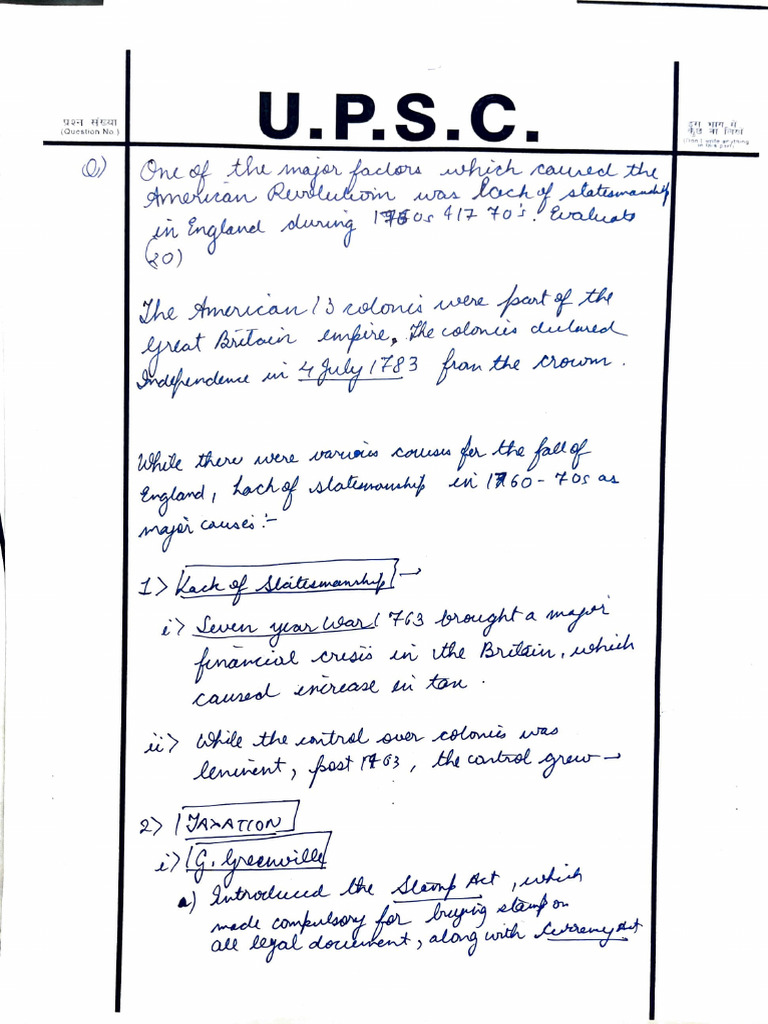 U.P.S.C.
प्रश्न संख्या
(Question No.)
इस भाग में
कुछ ना लिखें
(Don't write anything
in this part)
Q) One of the major factors which caused the
American Revolution was lack of statesmanship
in England during 1760s & 1770's. Evaluate
(20)
The American 13 colonis were part of the
Great Britain empire, The colonies declared
Independence in 4 July 1783 from the crown.
While there were various causes for the fall of
England, Lack of statesmanship in 1760-70s as
major causes:-
1> Lack of Statesmanship →
i> Seven year War 1763 brought a major
financial crisis in the Britain, which
caused increase in tax.
ii> While the control over colonies was
leninent, post 1763, the control grew →
2> TAXATION
i> G. Greenville
a) Introduced the Stamp Act, which
made compulsory for buying stamp on
all legal document, along with Currency Act